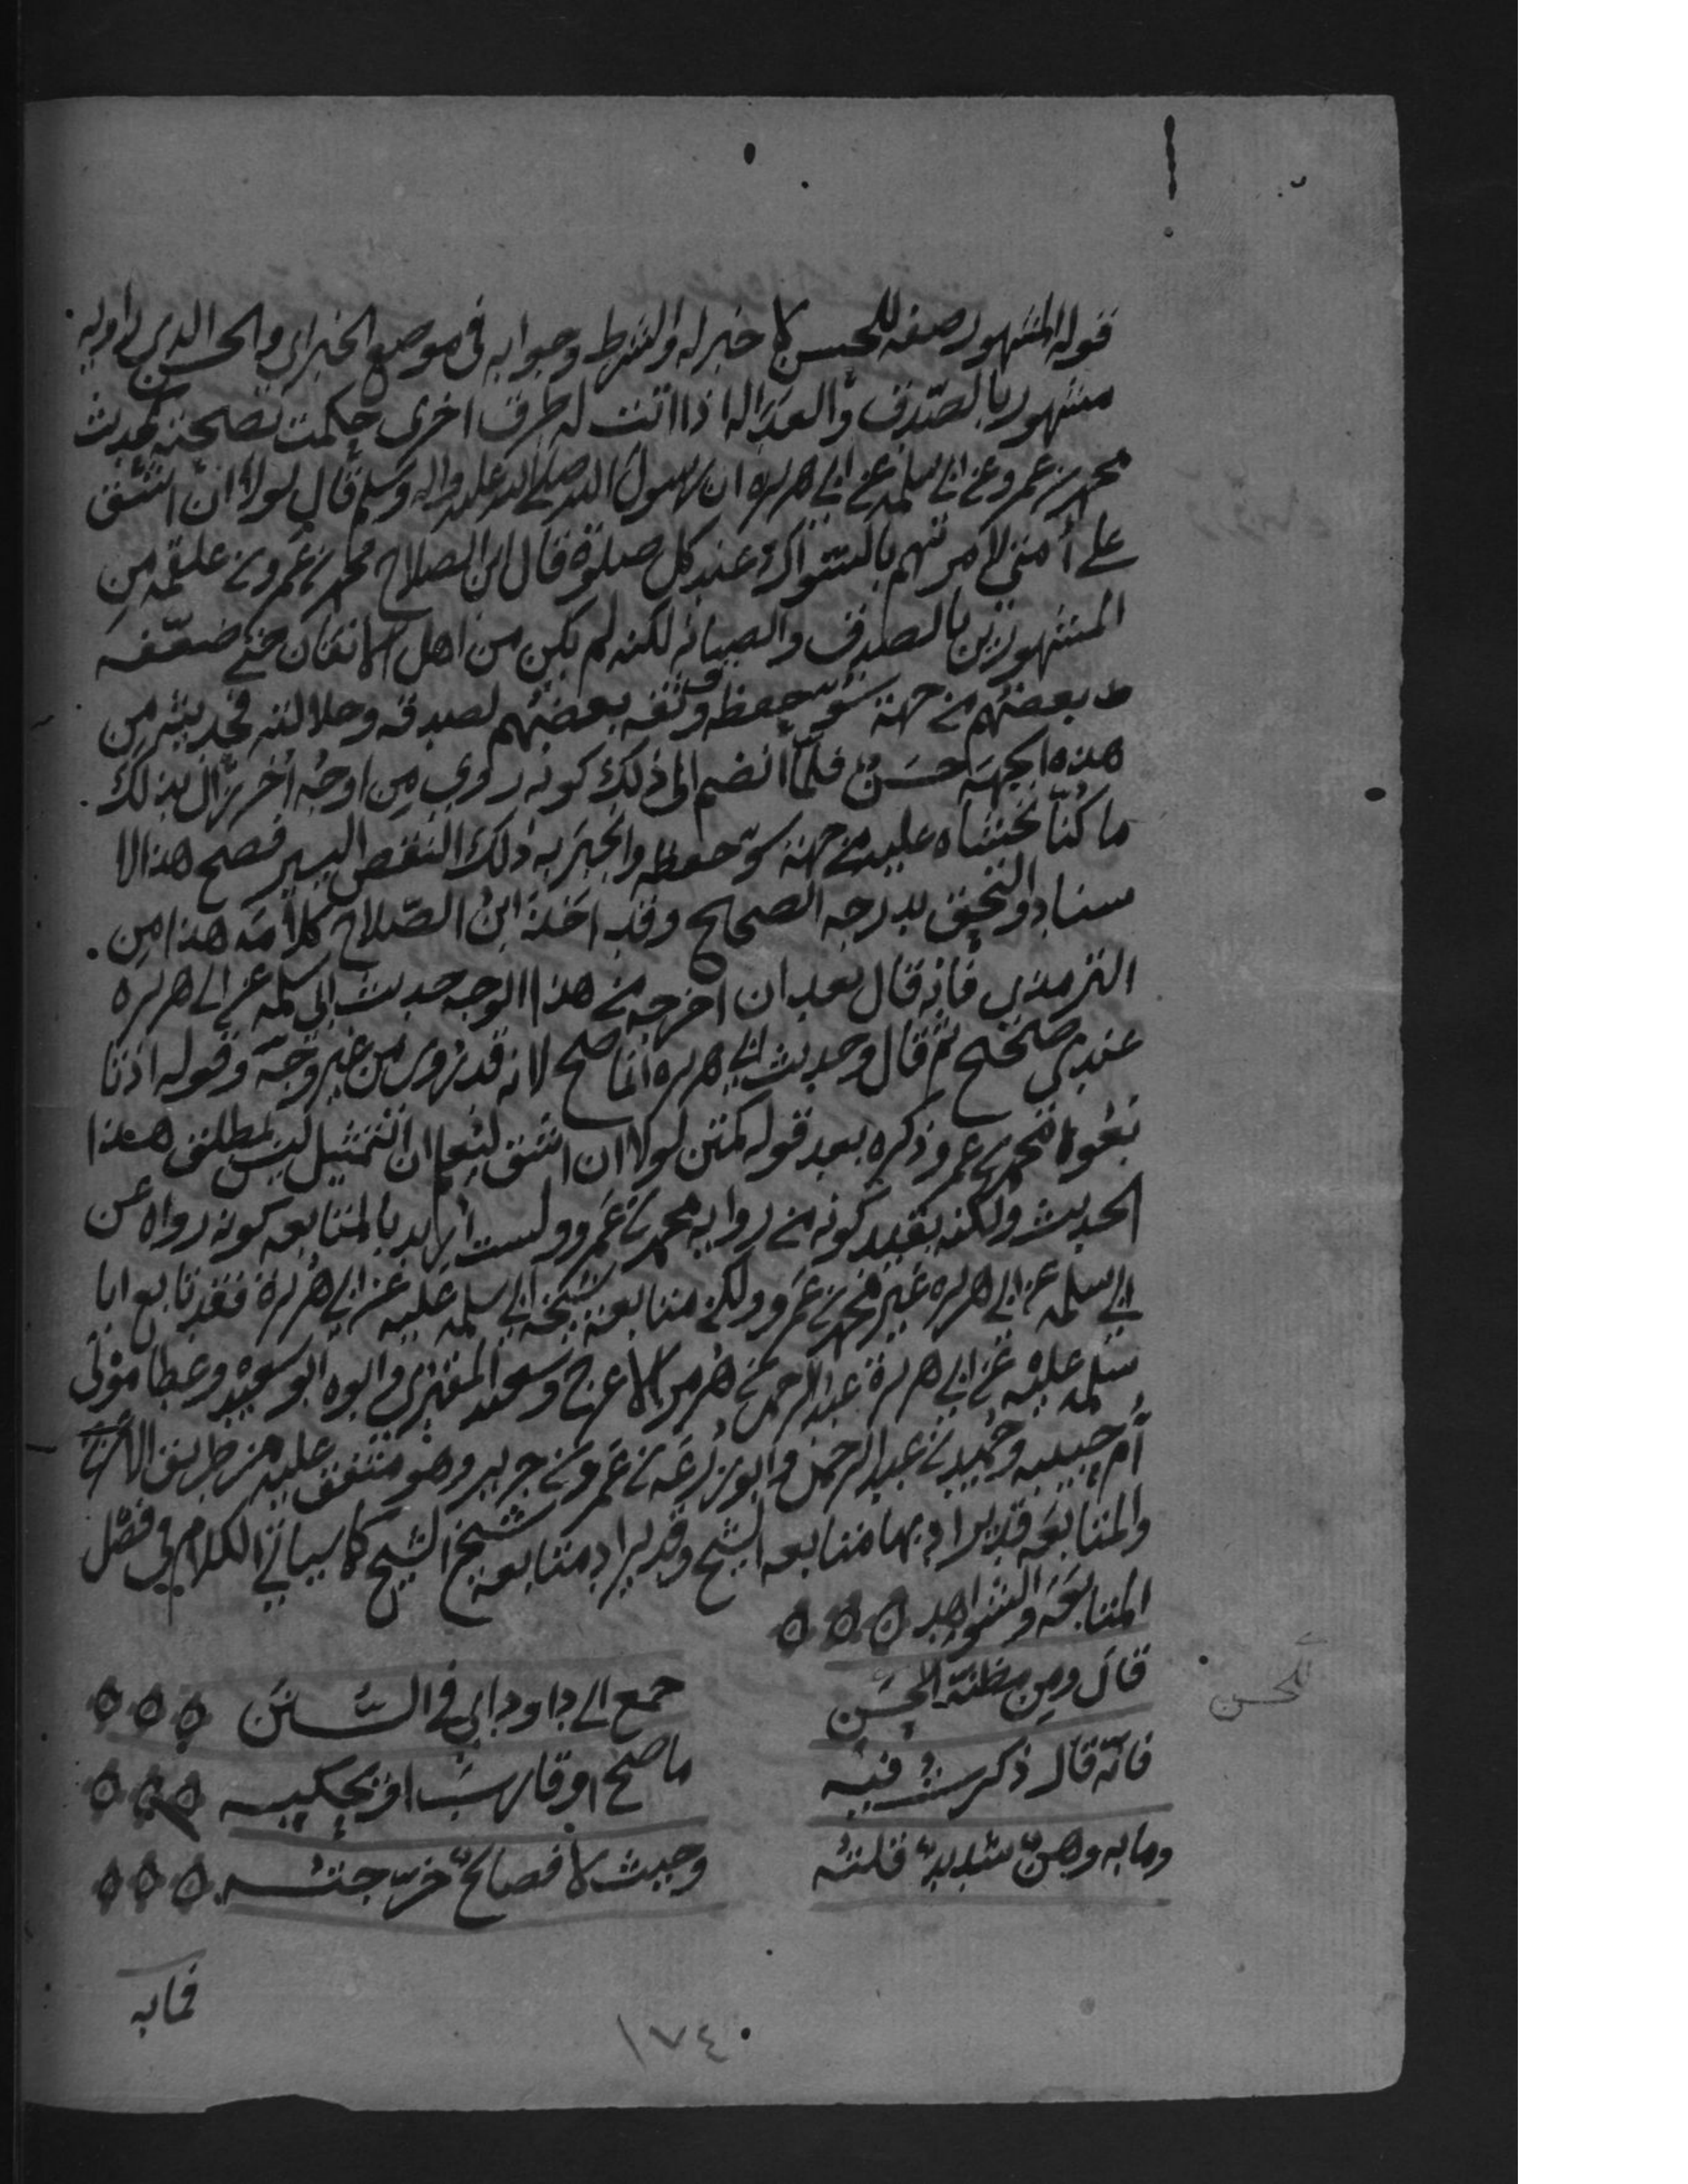 قوله المشهور صفه للحسن لا خبر له والشرط وجوابه فى موضع الخبر اي والحسن الذي راويه
مشهور بالصدق والعداله اذا اتت له طرق اخرى حكمت بصحته كحديث
محمد بن عمرو عن ابي سلمه عن ابي هريره ان رسول الله صلى الله عليه واله وسلم قال لولا ان اشق
على أمتي لامرتهم بالسواك عند كل صلوة قال ابن الصلاح محمد بن عمرو بن علقمه من
المشهورين بالصدق والصيانه لكنه لم يكن من اهل الاتقان حتى ضعّفه
بعضهم من جهة سوء حفظه وثقه بعضهم لصدقه وجلالته فحديثه من
هذه الجهة حسَن فلما انضم الى ذلك كونه روي مِن اوجُه اُخر زال بذلك
ما كُنّا نخشاه عليه من جهة سوء حفظه وانجبَر به ذلك النقص اليسير فصح هذا الا
سناد والتحق بدرجه الصحيح وقد اخذ ابن الصّلاح كلامَه هذا مِن
الترمذي فانه قال بعد ان اخرجه من هذا الوجه حديث ابى سلمه عن ابى هريره
عندي صحيح ثم قال وحديث ابي هريره انما صح لانه قد رُوى من غير وجه وقوله اذ تا
بَعُوا محمد بن عمرو ذكره بعد قوله كمتن لولا ان اشق ليُعلم ان التمثيل ليس بمطلق هذا
الحديث ولكنه بقيد كونه من روايه محمد بن عَمرو ولست اريد بالمتابعه كونه رواه عن
ابي سلمه عن ابي هريره غير محمد بن عمرو ولكن متابعة شيخه ابي سلمه عليه عن ابي هُريرة فقد تابع ابا
سلمه عليه عن ابي هريرة عبد الرحمن بن هُرمز الاعرج وسعيد المقبري وابوه ابو سعيد وعطا موْلى
أم حبيبه وحُميد بن عبد الرحمن وابو زُرعَه بن عَمرو بن جرير وهو متفق عليه من طريق الاعرج
والمتابعَه قد يراد بها متابعه الشيخ وقد يراد متابعه شيخ الشيخ كما سياتي الكلام في فصْل
المتابعَه والشواهد
قال ومن مظنّة للحسَن جمع ابى داود اي في السُّنَن
للحسن
فانّه قال ذكرتُ فيه ما صحّ او قارب او يحكيه
وما به وهنٌ شديدٌ قلتُه وحيث لا فصالحٌ خرّجتُه
فما به
١٧٤